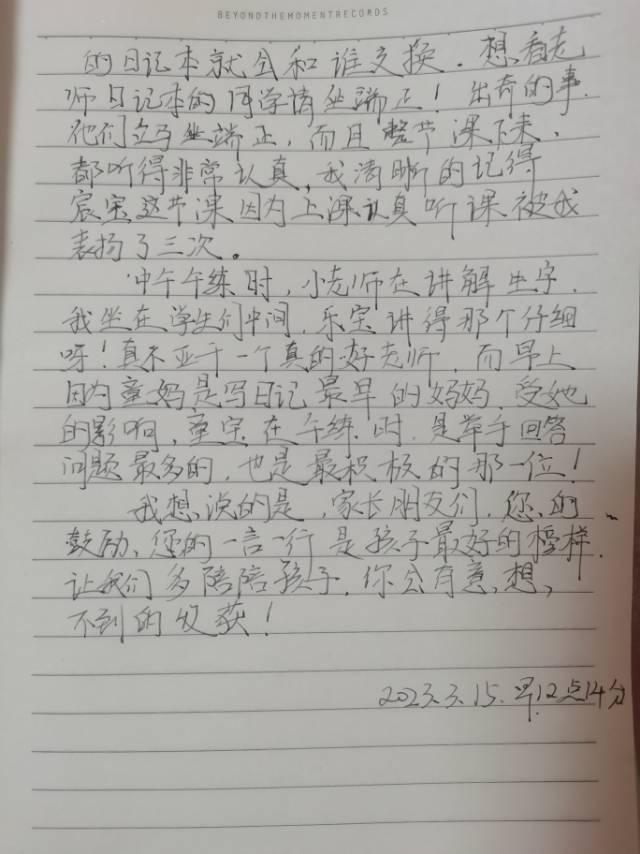 BEYONDTHEMOMENTRECORDS
的日记本就会和谁交换. 想看老
师日记本的同学请坐端正! 出奇的事.
他们立马坐端正, 而且整节课下来,
都听得非常认真, 我清晰的记得
宸宝这节课因为上课认真听课被我
表扬了三次。
中午午练时, 小老师在讲解生字.
我坐在学生们中间, 乐宝讲得那个仔细
呀! 真不亚于一个真的好老师, 而早上
因为童妈是写日记最早的妈妈, 受她
的影响, 童宝在午练时. 是举手回答
问题最多的, 也是最积极的那一位!
我想说的是, 家长朋友们, 您的
鼓励、您的一言一行是孩子最好的榜样.
让我们多陪陪孩子, 你会有意想
不到的收获!
2023.3.15. 早12点14分